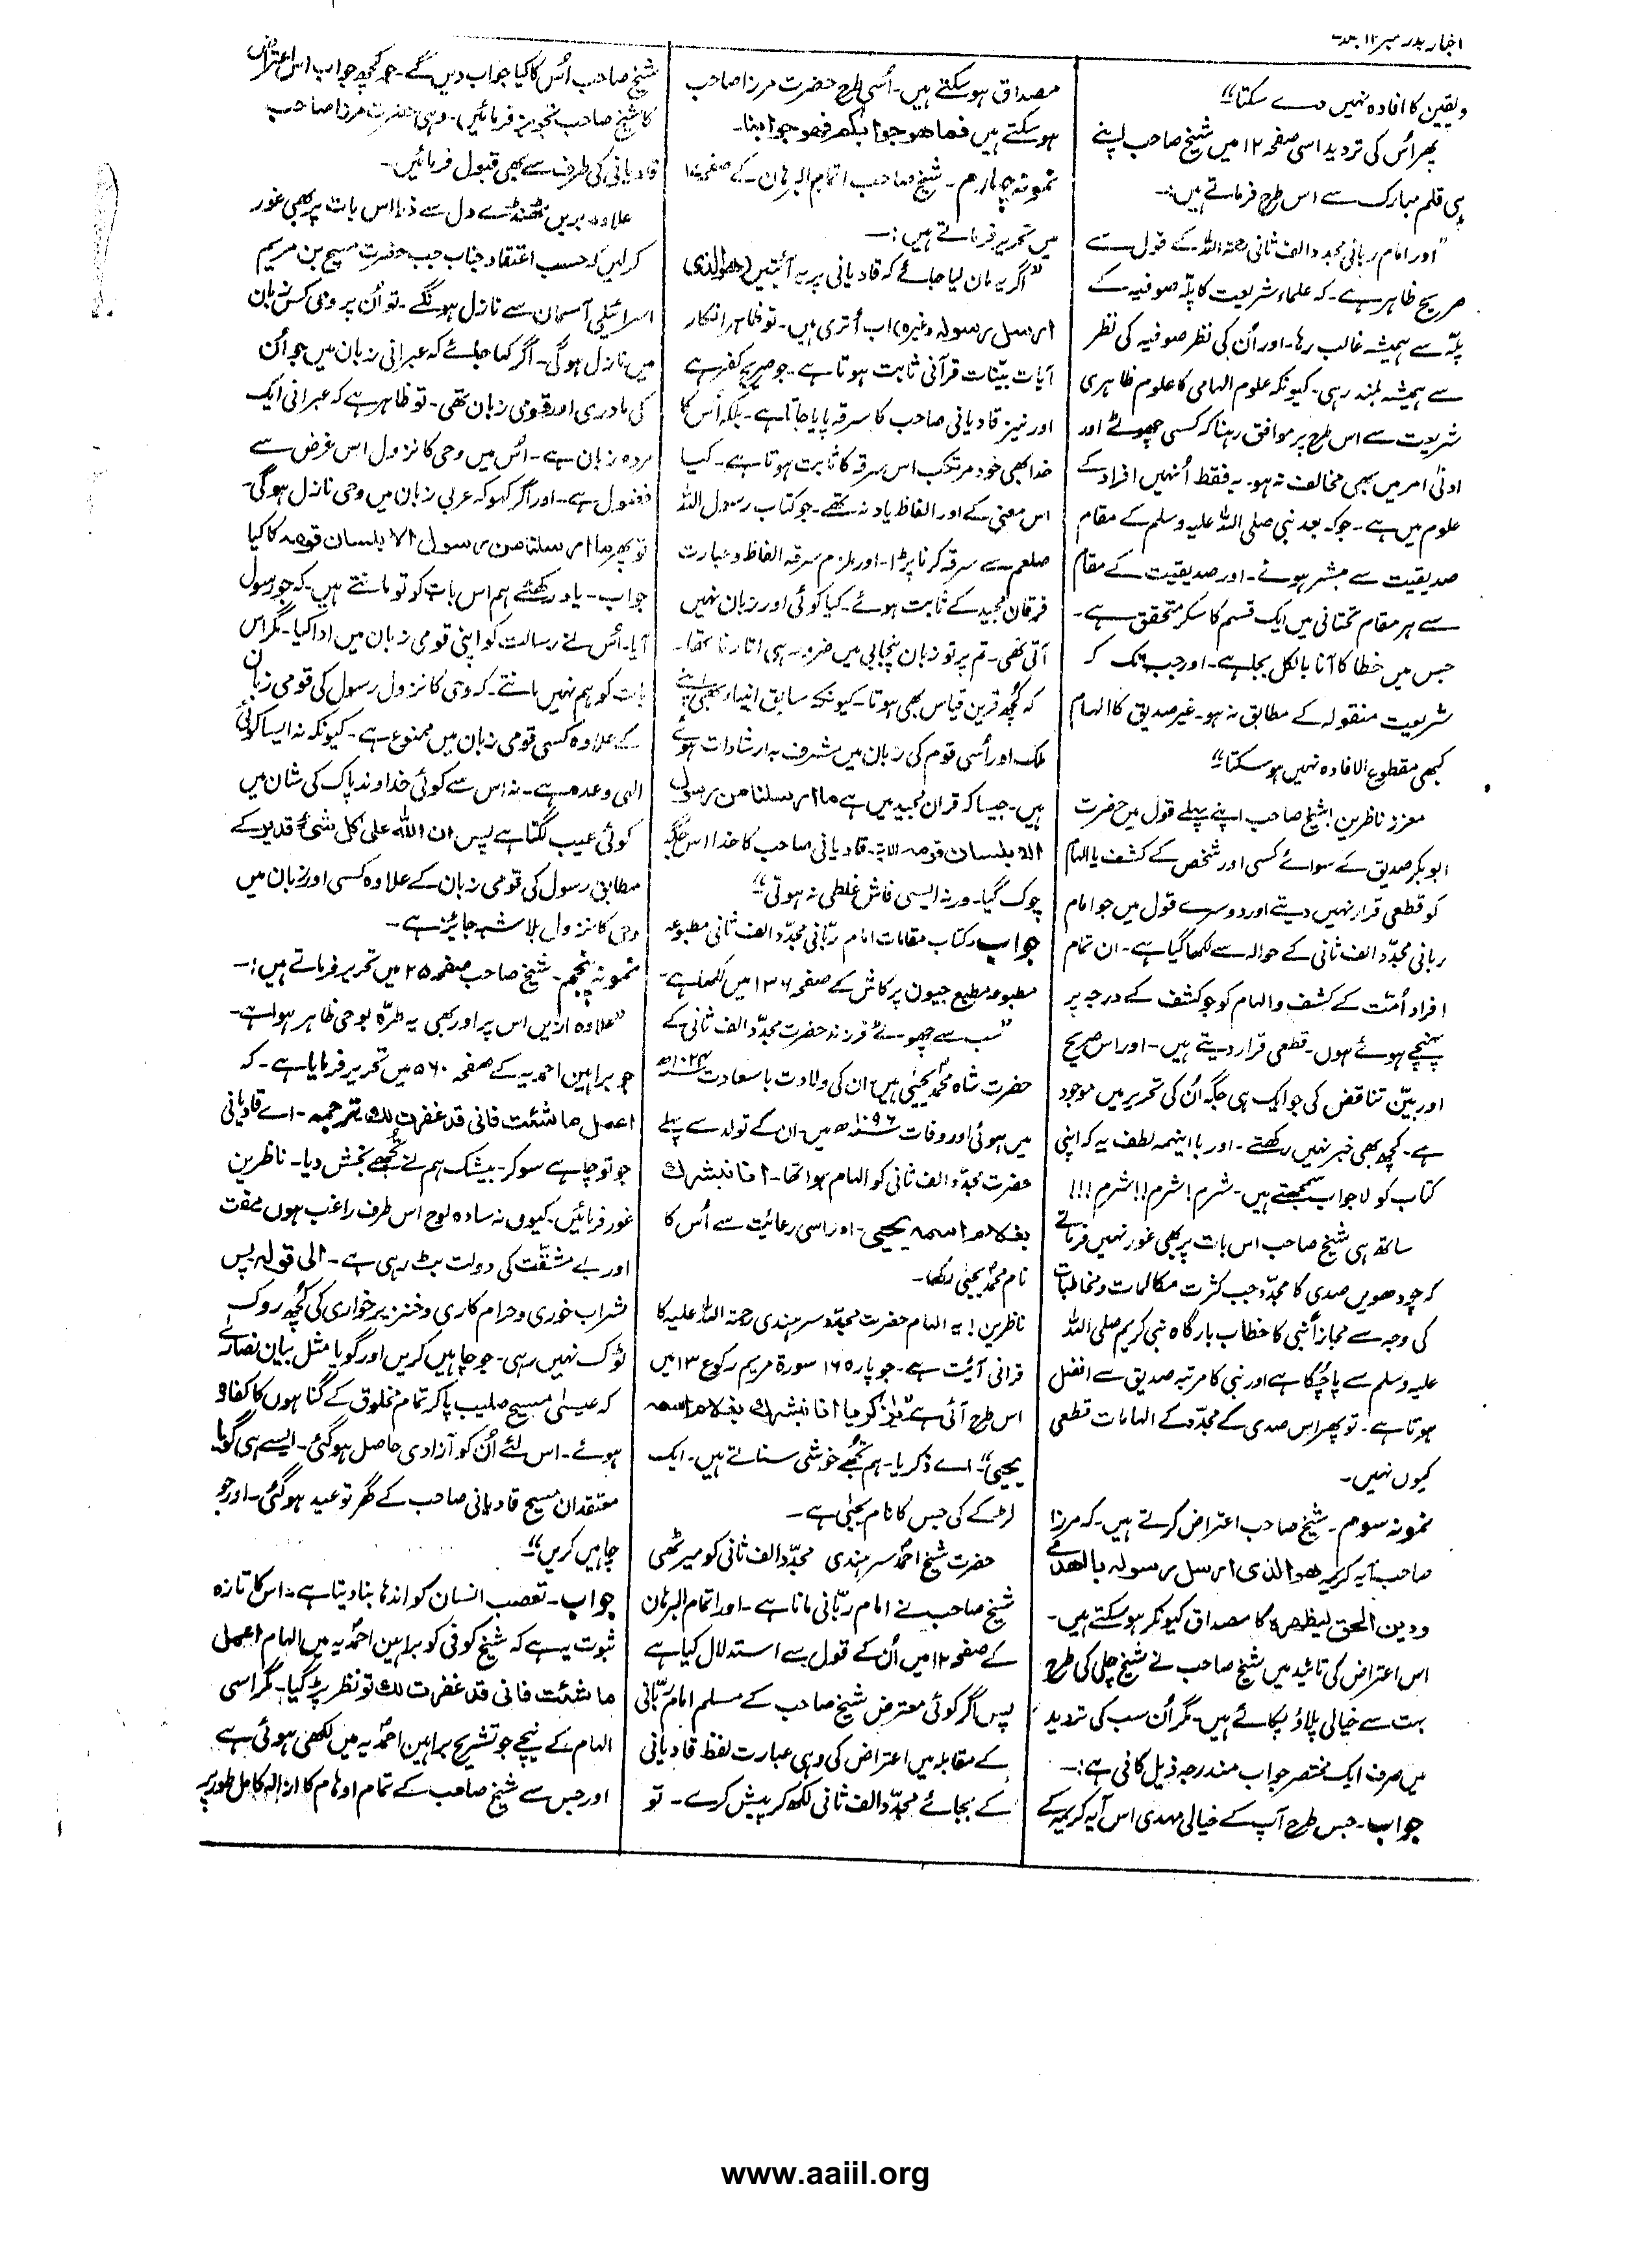 اخبار بدر نمبر ۱۲ جلد
ویقین کا افادہ نہیں دے سکتا"
پھر اُس کی تردید اسی صفحہ ۱۲ میں شیخ صاحب اپنے
ہی قلم مبارک سے اس طرح فرماتے ہیں:۔
"اور امام ربانی مجدد الف ثانی رحمۃ اللہ کے قول سے
صریح ظاہر ہے۔ کہ علماء شریعت کا پلّہ صوفیہ کے
پلّہ سے ہمیشہ غالب رہا۔ اور اُن کی نظر صوفیہ کی نظر
سے ہمیشہ بلند رہی۔ کیونکہ علوم الہامی کا علوم ظاہری
شریعت سے اس طرح پر موافق رہنا کہ کسی چھوٹے اور
ادنیٰ امر میں بھی مخالفت نہ ہو۔ یہ فقط اُنہیں افراد کے
علوم میں ہے۔ جو کہ بعد نبی صلی اللہ علیہ وسلم کے مقام
صدیقیت سے مبشر ہوئے۔ اور صدیقیت کے مقام
سے ہر مقام تحتانی میں ایک قسم کا سکر متحقق ہے۔
جس میں خطا کا آنا بالکل بجا ہے۔ اور جب تک کہ
شریعت منقولہ کے مطابق نہ ہو۔ غیر صدیق کا الہام
کبھی مقطوع الافادہ نہیں ہو سکتا"
معزز ناظرین! شیخ صاحب اپنے پہلے قول میں حضرت
ابوبکر صدیق کے سوائے کسی اور شخص کے کشف یا الہام
کو قطعی قرار نہیں دیتے اور دوسرے قول میں جو امام
ربانی مجدّد الف ثانی کے حوالہ سے لکھا گیا ہے۔ ان تمام
افراد اُمّت کے کشف و الہام کو جو کشف کے درجہ پر
پہنچے ہوئے ہوں۔ قطعی قرار دیتے ہیں۔ اور اس صریح
اور بیّن تناقض کی جو ایک ہی جگہ اُن کی تحریر میں موجود
ہے۔ کچھ بھی خبر نہیں رکھتے۔ اور با اینہمہ لطف یہ کہ اپنی
کتاب کو لاجواب سمجھتے ہیں۔ شرم! شرم!! شرم!!!
ساتھ ہی شیخ صاحب اس بات پر بھی غور نہیں فرماتے
کہ چودھویں صدی کا مجدّد جب کثرت مکالمات و مخاطبات
کی وجہ سے مجازاً نبی کا خطاب بارگاہ نبی کریم صلی اللہ
علیہ وسلم سے پا چُکا ہے اور نبی کا مرتبہ صدیق سے افضل
ہوتا ہے۔ تو پھر اس صدی کے مجدّد کے الہامات قطعی
کیوں نہیں۔
نمونہ سوم۔ شیخ صاحب اعتراض کرتے ہیں۔ کہ مرزا
صاحب آیہ کریمہ ھوالذی ارسل رسولہ بالھدی
ودین الحق لیظھرہ کا مصداق کیونکر ہو سکتے ہیں۔
اس اعتراض کی تائید میں شیخ صاحب نے شیخ چلی کی طرح
بہت سے خیالی پلاؤ پکائے ہیں۔ مگر اُن سب کی تردید
میں صرف ایک مختصر جواب مندرجہ ذیل کافی ہے:۔
جواب۔ جس طرح آپ کے خیالی مہدی اس آیہ کریمہ کے
مصداق ہو سکتے ہیں۔ اُسی طرح حضرت مرزا صاحب
ہو سکتے ہیں فما ھو جوابکم فھو جوابنا۔
نمونہ چہارم۔ شیخ صاحب اتمام البرہان کے صفحہ
میں تحریر فرماتے ہیں:۔
"اگر یہ مان لیا جائے کہ قادیانی پر یہ آئیتیں (ھوالذی
ارسل رسولہ وغیرہ) اب اُتری ہیں۔ تو ظاہر انکار
آیات بیّنات قرآنی ثابت ہوتا ہے۔ جو صریح کفر ہے
اور نیز قادیانی صاحب کا سرقہ پایا جاتا ہے۔ بلکہ اُس کا
خدا بھی خود مرتکب اس سرقہ کا ثابت ہوتا ہے۔ کیا
اس معنی کے اور الفاظ یاد نہ تھے۔ جو کتاب رسول اللہ
صلعم سے سرقہ کرنا پڑا۔ اور ملزم سرقہ الفاظ و عبارت
فرقان مجید کے ثابت ہوئے۔ کیا کوئی اور زبان نہیں
آتی تھی۔ تم پر تو زبان پنجابی میں ضرور ہی اتارنا تھا۔
کہ کُچھ قرین قیاس بھی ہوتا۔ کیونکہ سابق انبیاء بھی اپنے
ملک اور اُسی قوم کی زبان میں مشرف بہ ارشادات ہوئے
ہیں۔ جیسا کہ قرآن مجید میں ہے ما ارسلنا من رسول
الا بلسان قومہ الایۃ۔ قادیانی صاحب کا خدا اس جگہ
چوک گیا۔ ورنہ ایسی فاش غلطی نہ ہوتی"
جواب۔ کتاب مقامات امام ربّانی مجدّد الف ثانی مطبوعہ
مطبوعہ مطبع جیون پرکاش کے صفحہ ۱۳۶ میں لکھا ہے۔
"سب سے چھوٹے فرزند حضرت مجدّد الف ثانی کے
حضرت شاہ محمّد یحییٰ ہیں ان کی ولادت باسعادت ۱۰۲۴ھ
میں ہوئی اور وفات ۱۰۹۶ھ میں۔ ان کے تولد سے پہلے
حضرت مجدّد الف ثانی کو الہام ہوا تھا۔ انا نبشرک
بغلام اسمہ یحییٰ۔ اور اسی رعائیت سے اُس کا
نام محمّد یحییٰ رکھا۔
ناظرین! یہ الہام حضرت مجدّد سرہندی رحمۃ اللہ علیہ کا
قرآنی آئیت ہے۔ جو پارہ ۱۶ سورۃ مریم رکوع ۱۳ میں
اس طرح آئی ہے یٰزکریا انا نبشرک بغلام اسمہ
یحییٰ"۔ اے ذکریا۔ ہم تُجھے خوشی سناتے ہیں۔ ایک
لڑکے کی جس کا نام یحیٰی ہے۔
حضرت شیخ احمد سرہندی مجدّد الف ثانی کو میرٹھی
شیخ صاحب نے امام ربّانی مانا ہے۔ اور اتمام البرہان
کے صفحہ ۱۲ میں اُن کے قول سے استدلال کیا ہے
پس اگر کوئی معترض شیخ صاحب کے مسلم امام ربّانی
کے مقابلہ میں اعتراض کی وہی عبارت لفظ قادیانی
کے بجائے مجدّد الف ثانی لکھ کر پیش کرے۔ تو
شیخ صاحب اُس کا کیا جواب دیں گے۔ جو کچھ جواب اس اعتراض
کا شیخ صاحب تجویز فرمائیں۔ وہی حضرت مرزا صاحب
قادیانی کی طرف سے بھی قبول فرمائیں۔
علاوہ بریں ٹھنڈے دل سے ذرا اس بات پر بھی غور
کر لیں کہ حسب اعتقاد جناب جب حضرت مسیح بن مریم
اسرائیلی آسمان سے نازل ہونگے۔ تو اُن پر وحی کس زبان
میں نازل ہوگی۔ اگر کہا جائے کہ عبرانی زبان میں جو اُن
کی مادری اور قومی زبان تھی۔ تو ظاہر ہے کہ عبرانی ایک
مردہ زبان ہے۔ اُس میں وحی کا نزول اس غرض سے
فضول ہے۔ اور اگر کہو کہ عربی زبان میں وحی نازل ہوگی۔
تو پھر ما ارسلنا من رسول الا بلسان قومہ کا کیا
جواب۔ یاد رکھئے ہم اس بات کو تو مانتے ہیں۔ کہ جو رسول
آیا۔ اُس نے رسالت کو اپنی قومی زبان میں ادا کیا۔ مگر اس
بات کو ہم نہیں مانتے۔ کہ وحی کا نزول رسول کی قومی زبان
کے علاوہ کسی قومی زبان میں ممنوع ہے۔ کیونکہ نہ ایسا کوئی
الٰہی وعدہ ہے۔ نہ اس سے کوئی خداوند پاک کی شان میں
کوئی عیب لگتا ہے پس ان اللہ علی کل شئ قدیر کے
مطابق رسول کی قومی زبان کے علاوہ کسی اور زبان میں
وحی کا نزول بلا شبہ جائز ہے۔
نمونہ پنجم۔ شیخ صاحب صفحہ ۲۵ میں تحریر فرماتے ہیں:۔
"علاوہ ازیں اس پر اور بھی یہ طرّہ بوحی ظاہر ہوا ہے۔
جو براہین احمدیہ کے صفحہ ۵۶۰ میں تحریر فرمایا ہے۔ کہ
اعمل ما شئت فانی قد غفرت لک ترجمہ۔ اے قادیانی
جو تو چاہے سو کر۔ بیشک ہم نے تُجھے بخش دیا۔ ناظرین
غور فرمائیں۔ کیوں نہ سادہ لوح اس طرف راغب ہوں مفت
اور بے مشقّت کی دولت بٹ رہی ہے۔ الی قولہ پس
شراب خوری و حرام کاری و خنزیر خواری کی کُچھ روک
ٹوک نہیں رہی۔ جو چاہیں کریں اور گویا مثل بیان نصاریٰ
کہ عیسیٰ مسیح صلیب پا کر تمام مخلوق کے گناہوں کا کفارہ
ہوئے۔ اس لئے اُن کو آزادی حاصل ہو گئی۔ ایسے ہی گویا
معتقدان مسیح قادیانی صاحب کے گھر تو عید ہو گئی۔ اور جو
چاہیں کریں"۔
جواب۔ تعصب انسان کو اندھا بنا دیتا ہے۔ اس کا تازہ
ثبوت یہ ہے کہ شیخ کوفی کو براہین احمدیہ میں الہام اعمل
ما شئت فانی قد غفرت لک تو نظر پڑ گیا۔ مگر اسی
الہام کے نیچے جو تشریح براہین احمدیہ میں لکھی ہوئی ہے
اور جس سے شیخ صاحب کے تمام اوہام کا ازالہ کامل طور پر
www.aaiil.org